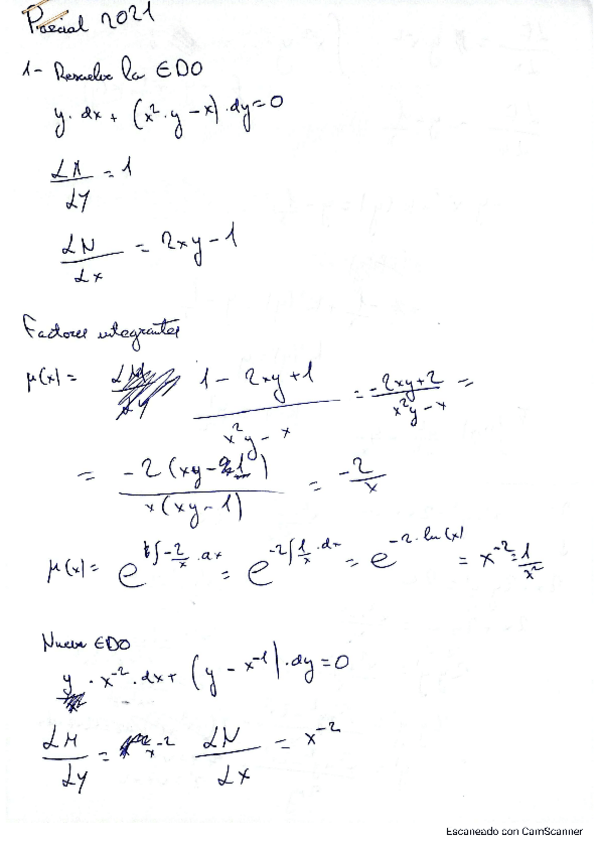 Parcial 2021
1- Resuelve la EDO
y · dx + (x² · y - x) · dy = 0
LM/LY = 1
LN/Lx = 2xy - 1
Factores integrantes
μ(x) = (1 - 2xy + 1)/(x²y - x) = (-2xy + 2)/(x²y - x) =
= -2(xy - 1)/(x(xy - 1)) = -2/x
μ(x) = e^(∫ -2/x · dx) = e^(-2∫ 1/x · dx) = e^(-2 · ln(x)) = x⁻² = 1/x²
Nueva EDO
y · x⁻² · dx + (y - x⁻¹) · dy = 0
LM/Ly = x⁻² LN/LX = x⁻²
Escaneado con CamScanner